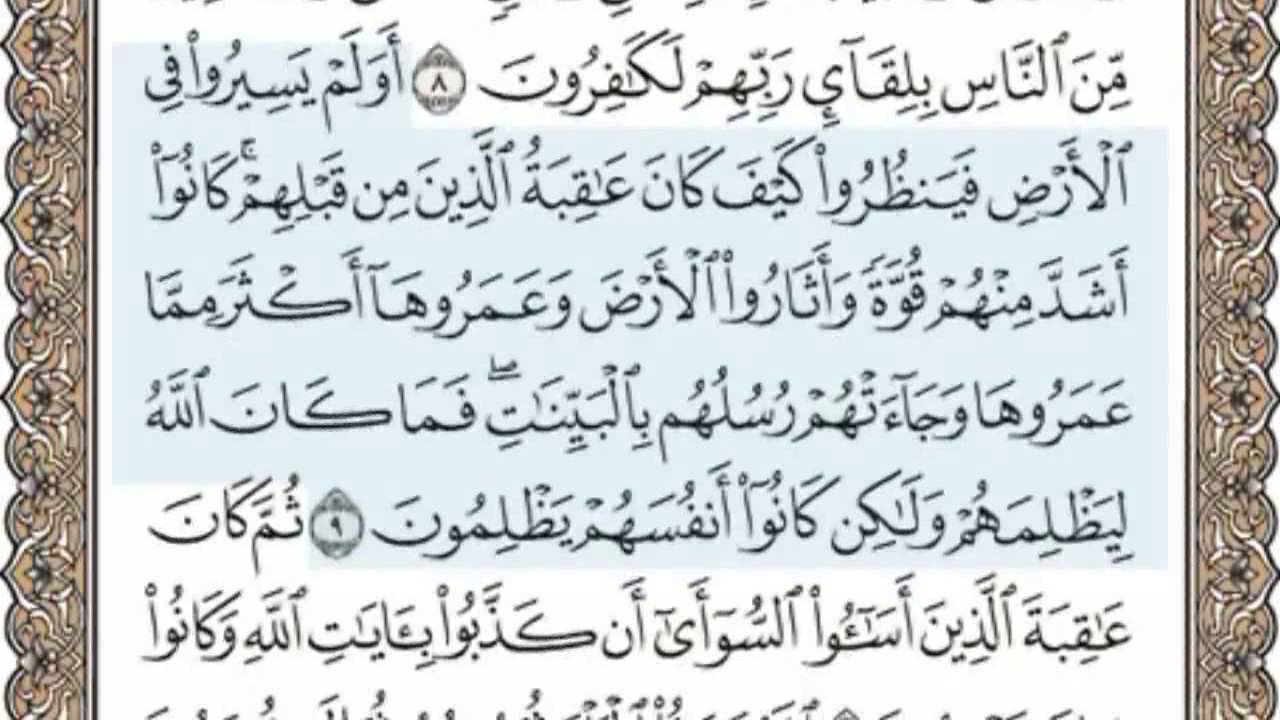 مِّنَ ٱلنَّاسِ بِلِقَآئِ رَبِّهِمْ لَكَٰفِرُونَ ٨ أَوَلَمْ يَسِيرُوا۟ فِى
ٱلْأَرْضِ فَيَنظُرُوا۟ كَيْفَ كَانَ عَٰقِبَةُ ٱلَّذِينَ مِن قَبْلِهِمْ ۚ كَانُوٓا۟
أَشَدَّ مِنْهُمْ قُوَّةً وَأَثَارُوا۟ ٱلْأَرْضَ وَعَمَرُوهَآ أَكْثَرَ مِمَّا
عَمَرُوهَا وَجَآءَتْهُمْ رُسُلُهُم بِٱلْبَيِّنَٰتِ ۖ فَمَا كَانَ ٱللَّهُ
لِيَظْلِمَهُمْ وَلَٰكِن كَانُوٓا۟ أَنفُسَهُمْ يَظْلِمُونَ ٩ ثُمَّ كَانَ
عَٰقِبَةَ ٱلَّذِينَ أَسَٰٓـُٔوا۟ ٱلسُّوٓأَىٰٓ أَن كَذَّبُوا۟ بِـَٔايَٰتِ ٱللَّهِ وَكَانُوا۟